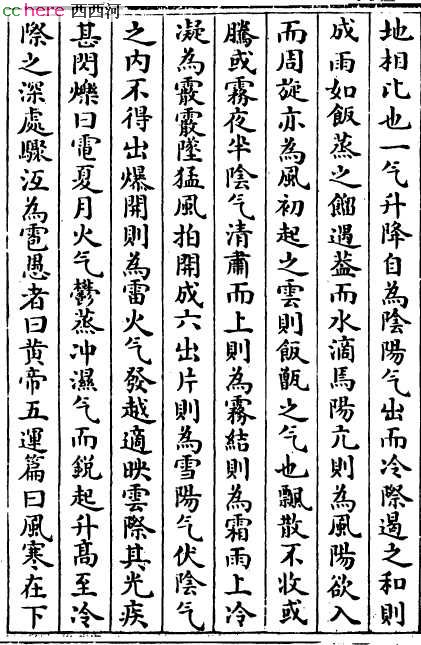 cchere 西西河
地相比也一气升降自為陰陽气出而冷際遏之和則
成雨如飯蒸之餾遇蓋而水滴馬陽亢則為風陽欲入
而周旋亦為風初起之雲則飯甑之气也飄散不收或
騰或霧夜半陰气清肅而上則為霧結則為霜雨上冷
凝為霰霰墜猛風拍開成六出片則為雪陽气伏陰气
之内不得出爆開則為雷火气發越適映雲際其光疾
甚閃爍曰電夏月火气鬱蒸冲濕气而銳起升髙至冷
際之深處驟沍為雹愚者曰黄帝五運篇曰風寒在下